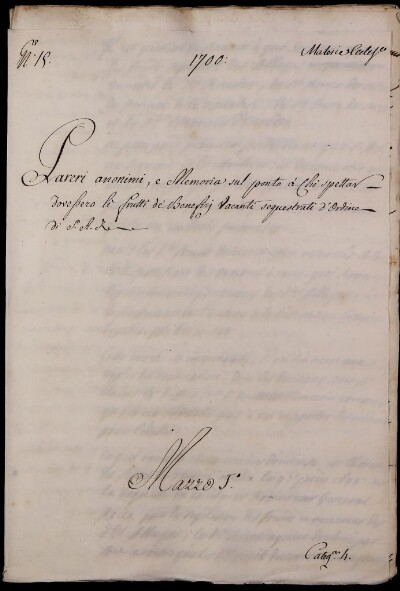 N.ro 18. 1700: Materie Eccles.e
Pareri anonimi, e Memoria sul ponto à Chi spettar
dovessero li frutti de Beneficj Vacanti sequestrati d'Ordine
di S. A. R.
Mazzo
Categ.a 4.